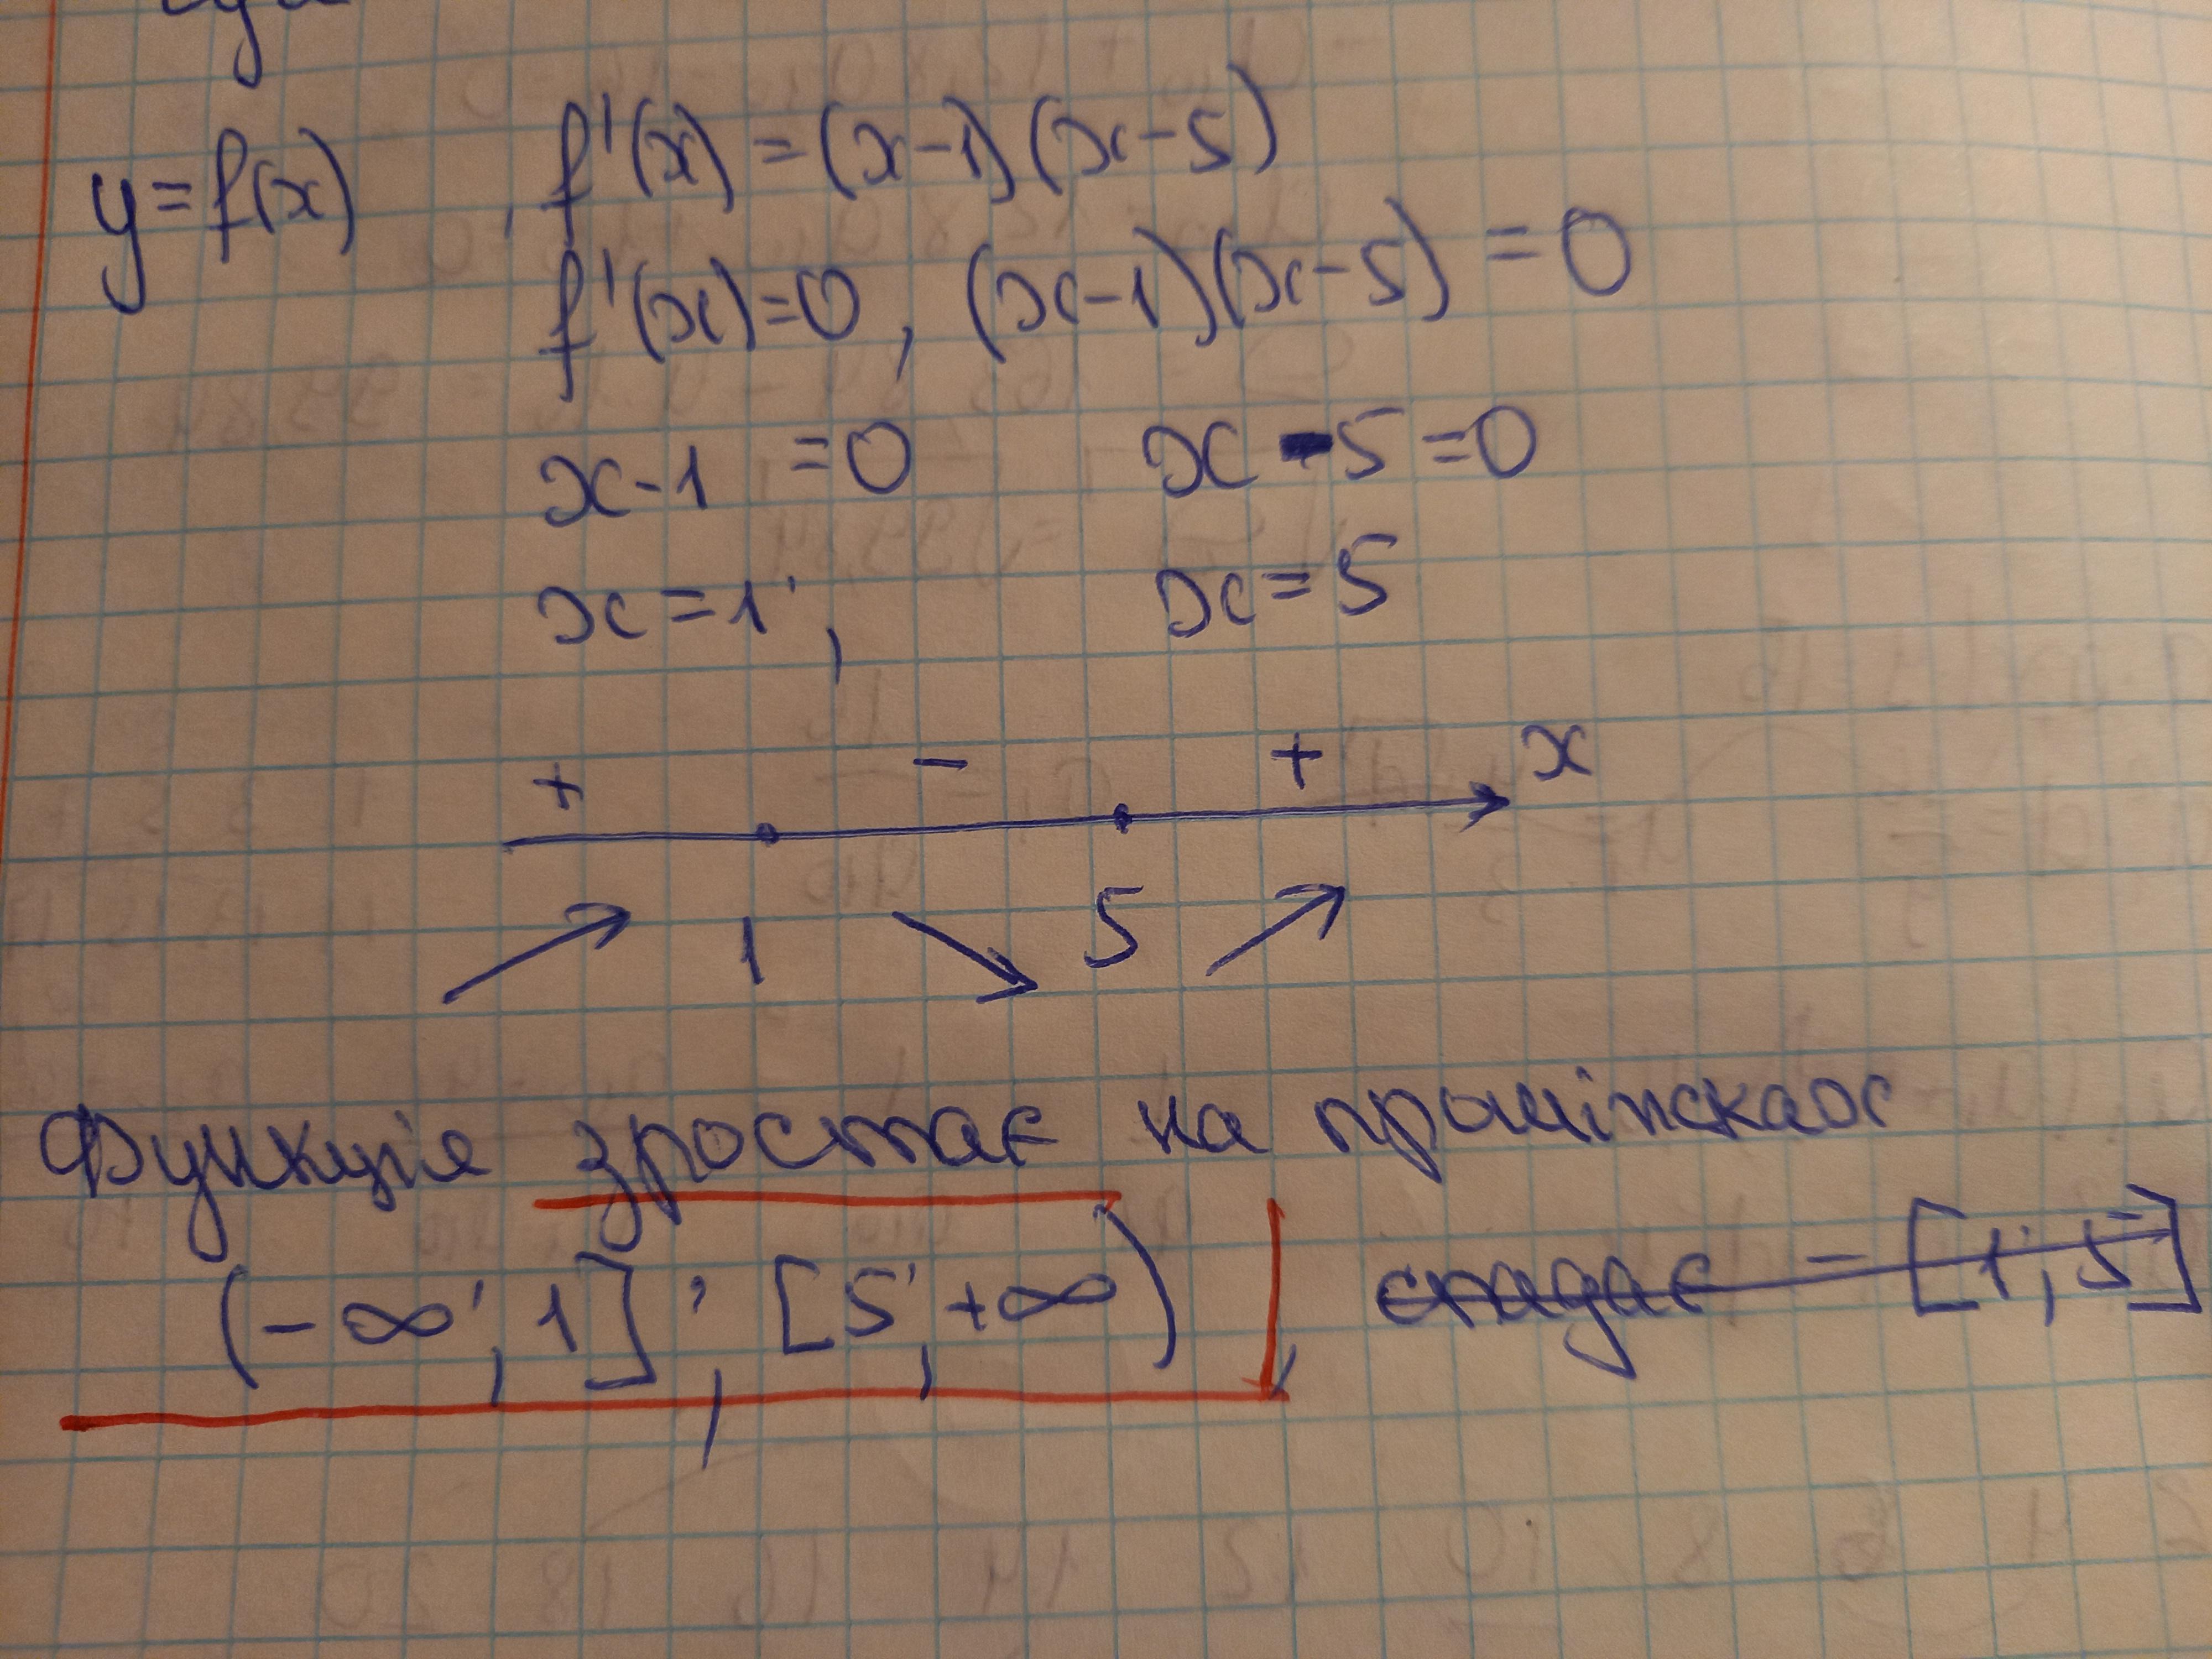 y=f(x) , f'(x)=(x-1)(x-5)
f'(x)=0, (x-1)(x-5)=0
x-1 =0 x-5=0
x=1; x=5
+ - + x
1 5
Функція зростає на проміжках
(-∞; 1]; [5; +∞) спадає - [1; 5]